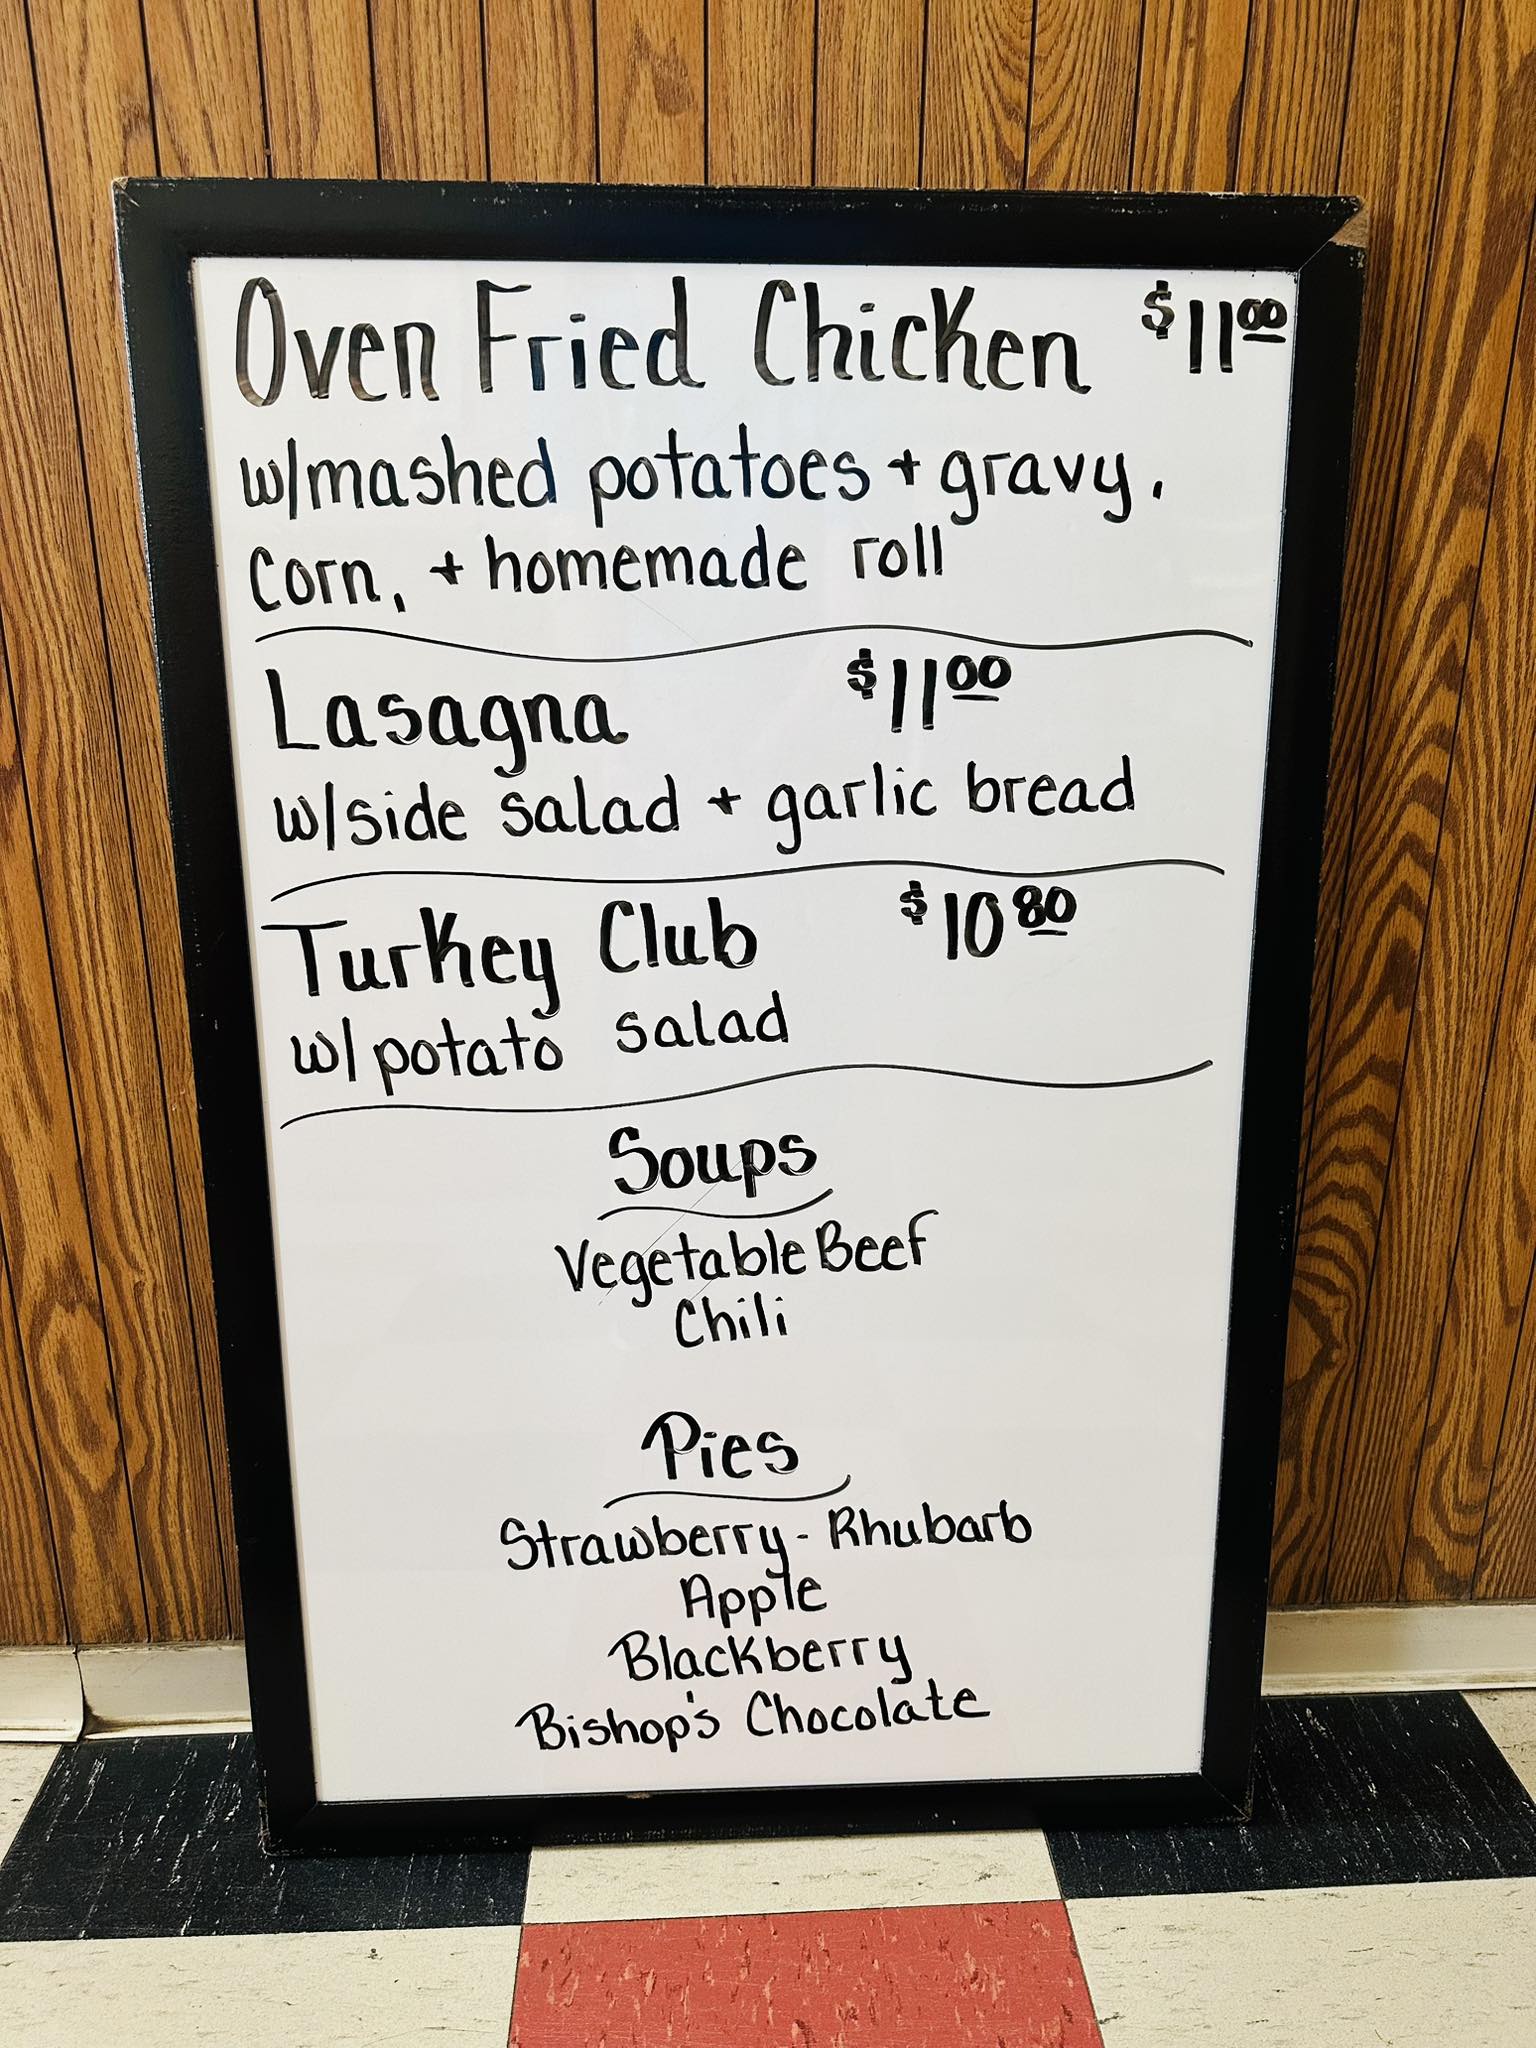 Oven Fried Chicken $11.00
w/mashed potatoes + gravy,
Corn, + homemade roll
Lasagna $11.00
w/side salad + garlic bread
Turkey Club $10.80
w/potato salad
Soups
Vegetable Beef
Chili
Pies
Strawberry-Rhubarb
Apple
Blackberry
Bishop's Chocolate